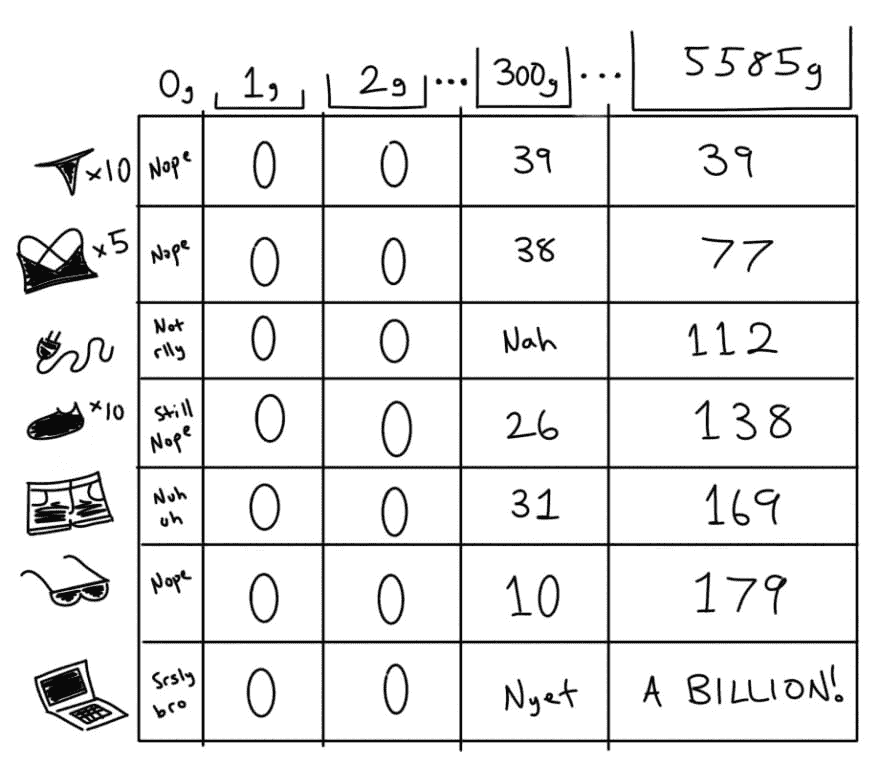 0g 1g 2g ... 300g ... 5585g
x10 Nope 0 0 39 39
x5 Nope 0 0 38 77
Not rlly 0 0 Nah 112
x10 Still Nope 0 0 26 138
Nuh uh 0 0 31 169
Nope 0 0 10 179
Srsly bro 0 0 Nyet A BILLION!